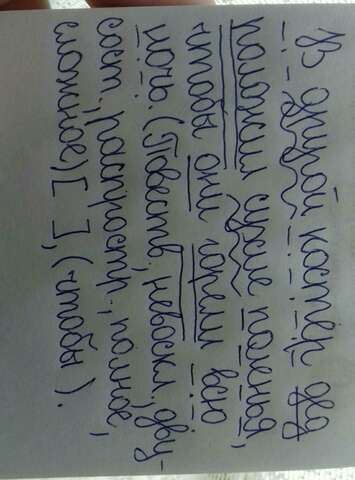 В другой костёр дед
положил сухие поленья,
чтобы они горели всю
ночь. (Повеств., невоскл., дву-
сост., распростр., полное,
сложное) [ ], (чтобы ).